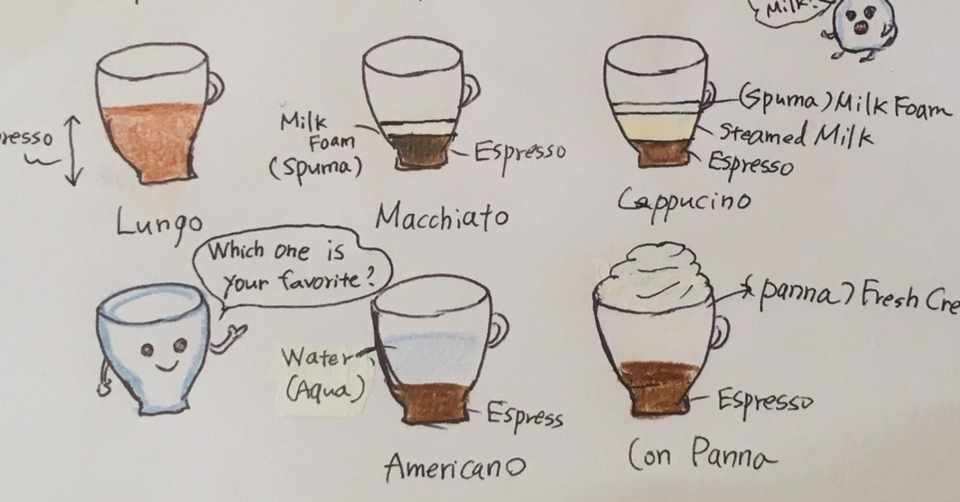 Milk!
resso
Lungo
Milk
Foam
(Spuma)
Espresso
Macchiato
(Spuma) Milk Foam
Steamed Milk
Espresso
Cappucino
Which one is
your favorite?
Water
(Aqua)
Espress
Americano
(panna) Fresh Cre
Espresso
Con Panna